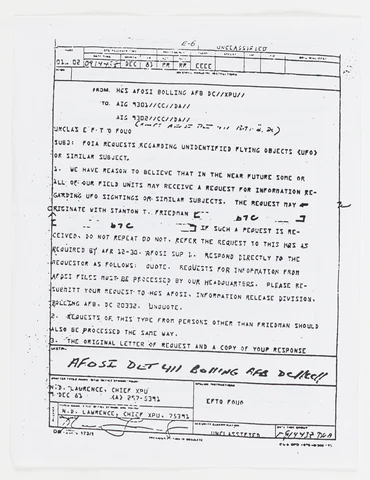 E-6
UNCLASSIFIED
01 02 091445 DEC 83 PR RR EEEE
FROM: HQS AFOSI BOLLING AFB DC//XPU//
TO: AIG 9301//CC//DA//
AIG 9302//CC//DA//
UNCLAS E F T O FOUO
SUBJ: FOIA REQUESTS REGARDING UNIDENTIFIED FLYING OBJECTS (UFO)
OR SIMILAR SUBJECT.
1. WE HAVE REASON TO BELIEVE THAT IN THE NEAR FUTURE SOME OR
ALL OF OUR FIELD UNITS MAY RECEIVE A REQUEST FOR INFORMATION RE-
GARDING UFO SIGHTINGS OR SIMILAR SUBJECTS. THE REQUEST MAY
ORIGINATE WITH STANTON T. FRIEDMAN [ b7C ]
[ b7C ] IF SUCH A REQUEST IS RE-
CEIVED, DO NOT REPEAT DO NOT, REFER THE REQUEST TO THIS HQS AS
REQUIRED BY AFR 12-30, AFOSI SUP 1. RESPOND DIRECTLY TO THE
REQUESTOR AS FOLLOWS: QUOTE. REQUESTS FOR INFORMATION FROM
AFOSI FILES MUST BE PROCESSED BY OUR HEADQUARTERS. PLEASE RE-
SUBMIT YOUR REQUEST TO HQS AFOSI, INFORMATION RELEASE DIVISION,
BOLLING AFB, DC 20332. UNQUOTE.
2. REQUESTS OF THIS TYPE FROM PERSONS OTHER THAN FRIEDMAN SHOULD
ALSO BE PROCESSED THE SAME WAY.
3. THE ORIGINAL LETTER OF REQUEST AND A COPY OF YOUR RESPONSE
AFOSI DET 411 BOLLING AFB DC//CC//
N.D. LAWRENCE, CHIEF XPU
9 DEC 83 (A) 297-5391
EFTO FOUO
N.D. LAWRENCE, CHIEF XPU, 75391
UNCLASSIFIED